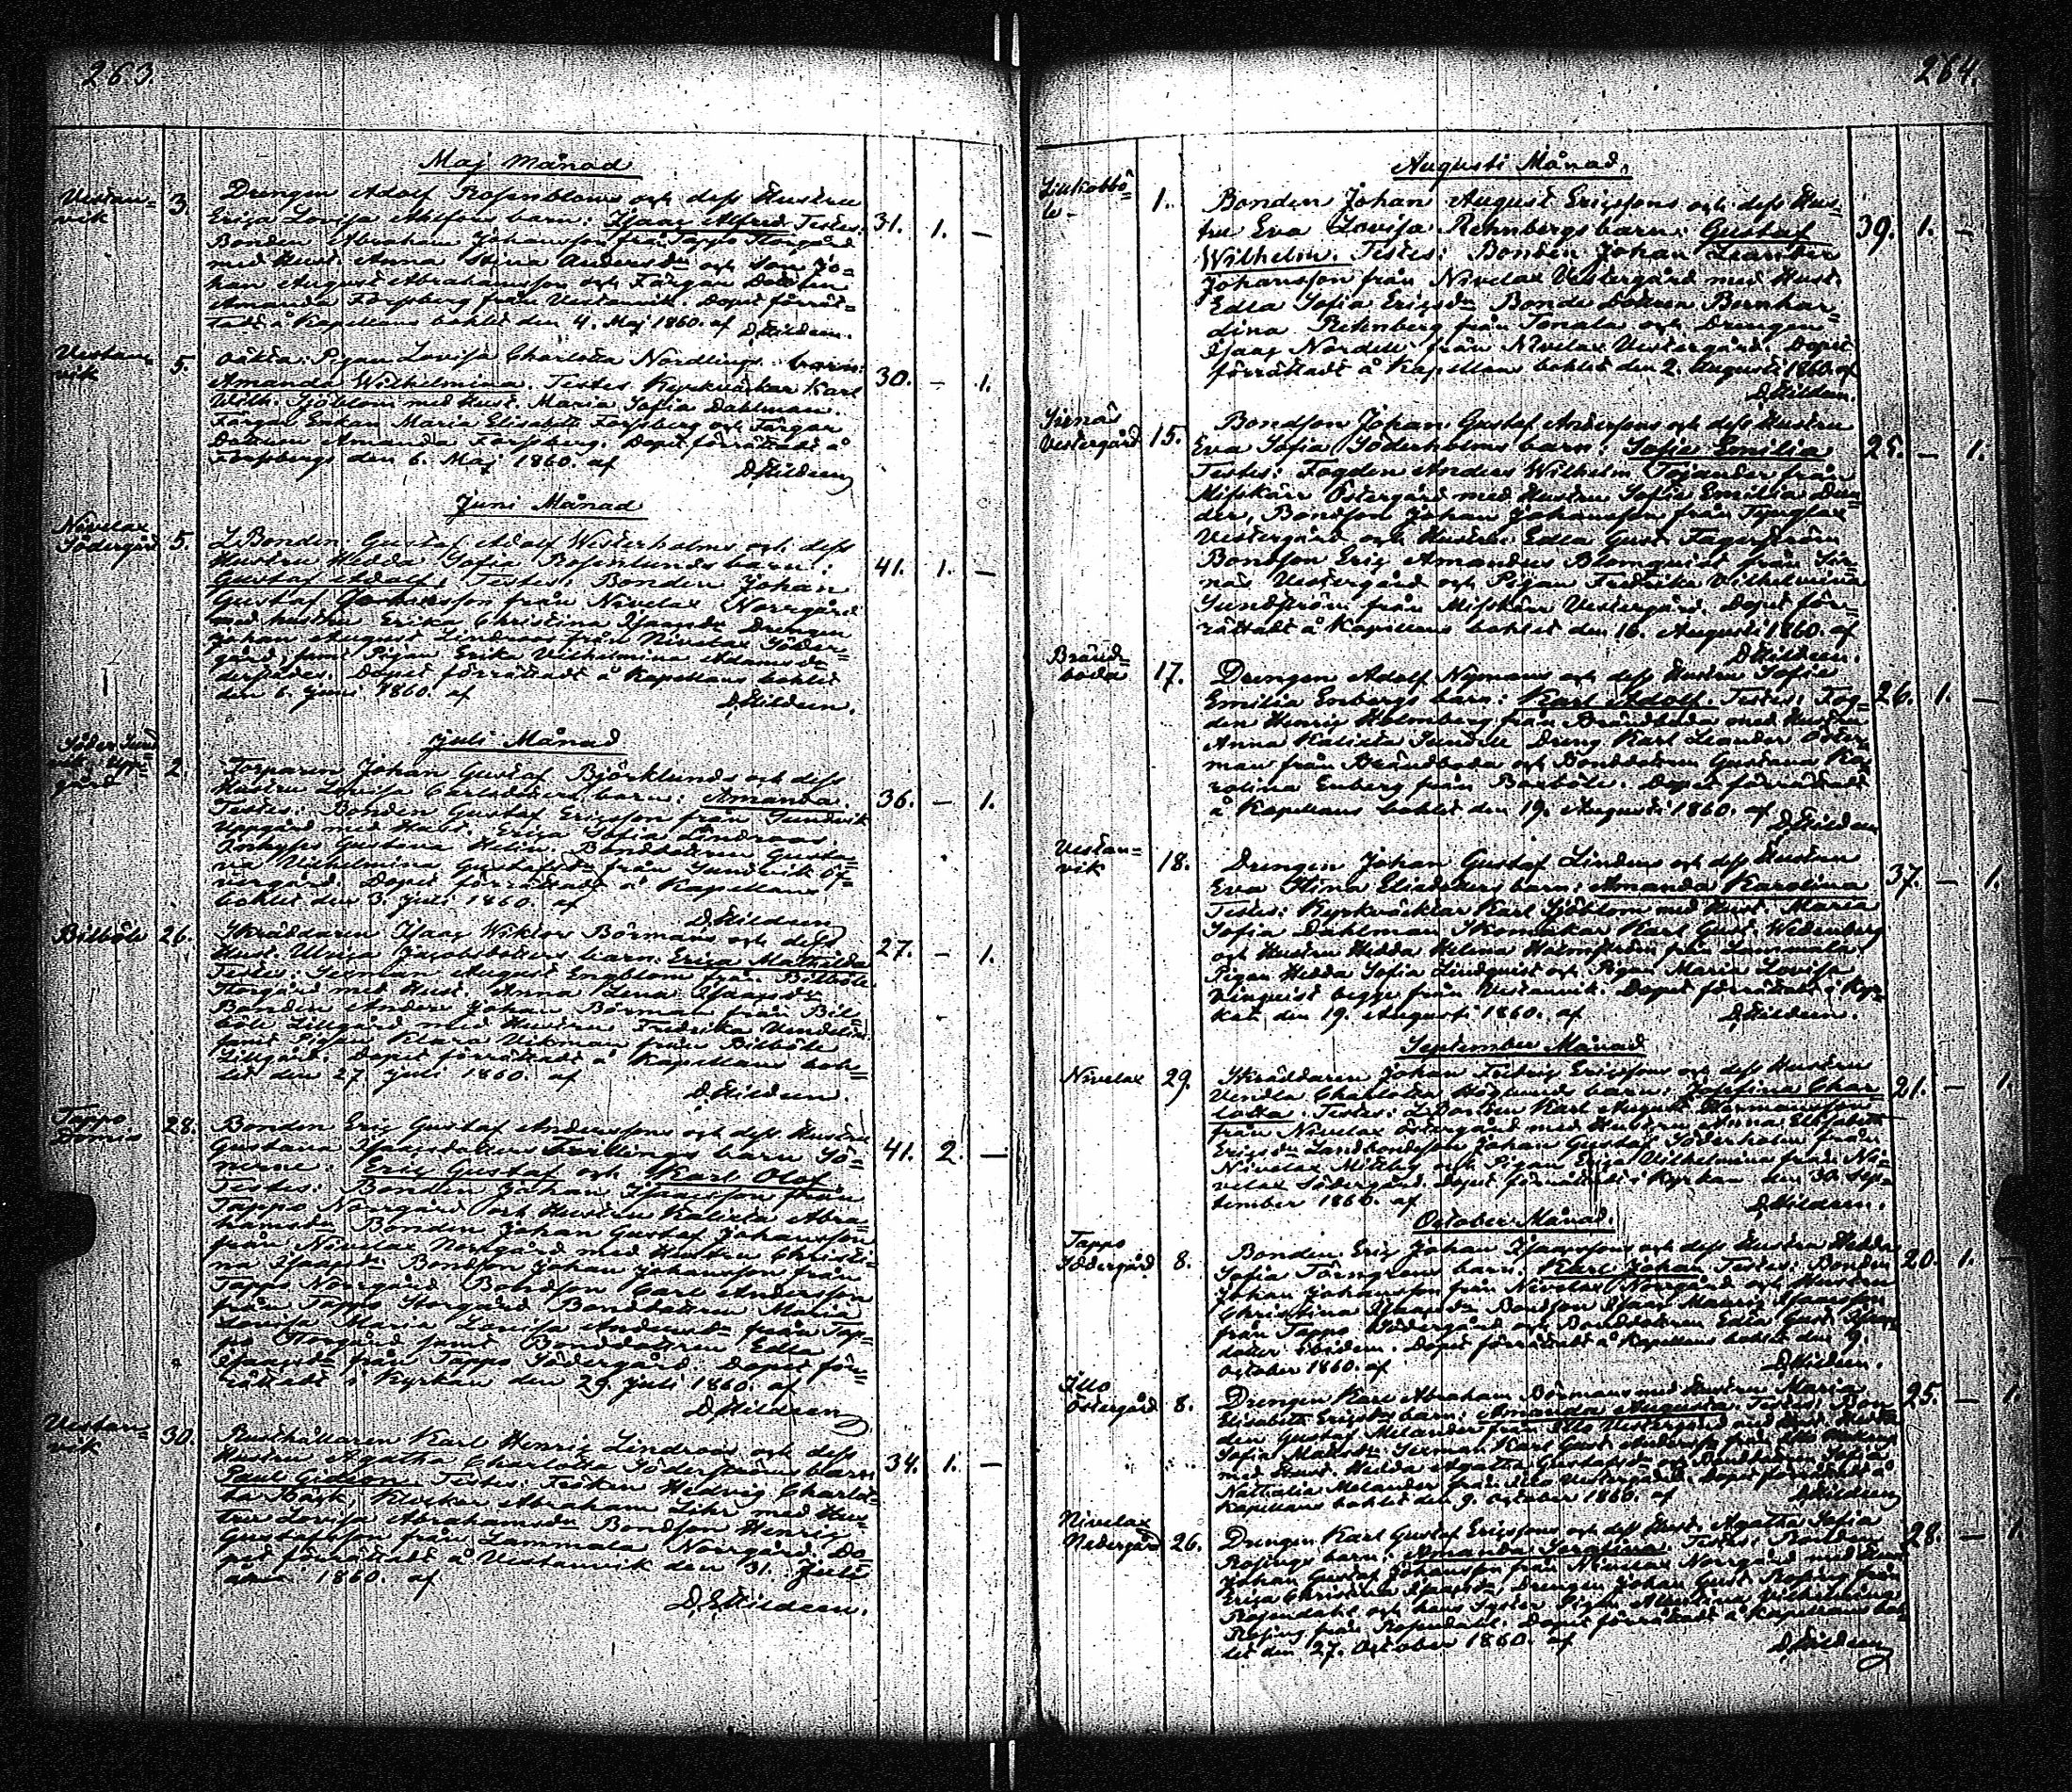 263.
Maj Månad
Vestan=
vik
3.
Drengen Adolf Rosenbloms och dess Hustru
Erica Lovisa barn: Isaac Alfred. Testes:
31. 1. —
Bonden Abraham Johansson från Tappo Storgård
med Hust. Anna Stina Andersdr och Son Jo=
han August Abrahamsson och Färgar Dottren
Amanda Forssberg från Vestanvik. Dopet förrät=
tadt å Kapellans bohlet den 4. Maj 1860. af D. Hildeen.
Vestan=
vik
5.
oäkta: Pigan Lovisa Charlotta Nordlings barn:
Amanda Wilhelmina. Testes: Kyrkväktar Karl
30. — 1.
Wilh. Sjöblom med Hust. Maria Sofia Dahlman.
Färgar Enkan Maria Elisabeth Forssberg och Färgar
Dottren Amanda Forssberg. Dopet förrättadt å
Forssbergs den 6. Maj 1860. af D. Hildeen
Juni Månad
Nivelax
Södergård
5.
L. Bonden Gustaf Adolf Westerholms och dess
Hustru Hedda Sofia Rosenlunds barn:
41. 1. —
Gustaf Adolf. Testes: Bonden Johan
Gustaf Johansson från Nivelax Norrgård
med hustru Erika Christina Isaacsdr Drengen
Johan August Lindroos från Nivelax Söder=
gård, samt Pigan Erika Vilhelmina Adamsdr
derstädes. Dopet förrättadt å Kapellans bohlet
den 6. Juni 1860. af D. Hildeen.
Juli Månad
Söder Sund
vik Upp=
gård
2.
Torparen Johan Gustaf Björklunds och dess
Hustru Lovisa Carlsdotters barn: Amanda.
36. — 1.
Testes: Bonden Gustaf Ericsson från Sundvik
Uppgård med Hust. Erica Sofia Lindroos
Gustava Helin. Bonddottren Gusta=
va Vilhelmina Gustafsdr från Sundvik Öf=
vergård. Dopet förrättadt å Kapellans
bohlet den 3. Juli 1860. af D. Hildeen
Bilböle
26.
Skräddaren Isaac Wiktor Börmans och dess
Hust. Ulrica Jacobsdotters barn: Erica Mathilda
27. — 1.
Testes: August Engblom från Bilböle
Storgård med Hust. Anna Lena Isaacsdr
Bonden Anders Johan Börman från Bil
böle Lillgård med Hustru Fredrika Vendelin
samt Pigan Klara Vikman från Bilböle
Lillgård. Dopet förrättadt å Kapellans boh=
let den 27 Juli 1860. af
D. Hildeen.
Tappo
Domis
28.
Bonden Eric Gustaf Anderssons och dess Hustru
Gustava Isaacsdotters Tvillings barn Sö=
41. 2. —
nerne: Eric Gustaf och Karl Olof
Testes: Bonden Johan Isaacsson från
Tappo Norrgård och Hustru Kalixta Abra=
hamsdr Bonden Johan Gustaf Johansson
från Nivelax Norrgård med Hustru Christi=
na Isaacsdr Bondson Johan Johansson från
Tappo Norrgård Bondson Carl Andersson
från Tappo Storgård Bonddottren Maria
Lovisa Maria Lovisa Andersdr från Tap=
po Storgård samt Bonddottren Edla
Isaacsdr från Tappo Södergård. Dopet för=
rättadt i Kyrkan den 29. Juli 1860. af
D. Hildeen
Vestan=
vik
30.
Rusthållaren Karl Henric Lindroos och dess
Hustru Agatha Charlotta Söderströms barn
34. 1. —
Paul Gideon. Testes: Hedvig Charlot=
ta Klockar Abraham med Hus=
tru Lovisa Abrahamsdr Bondson Henric
Gustafsson från Lammala Norrgård. Do=
pet förrättadt å Vestanvik den 31. Juli
1860. af
D. E. Hildeen.
264.
Augusti Månad,
Lillkobbö=
le
1.
Bonden Johan August Ericssons och dess Hus=
tru Eva Lovisa Rehnbergs barn: Gustaf
39. 1. —
Wilhelm. Testes: Bonden Johan Leander
Johansson från Nivelax Vestergård med Hust.
Edla Sofia Ericsdr Bonde Dottren Bernhar=
dina Rehnberg från Tonala och Drengen
Isaac Nordell från Nivelax Vestergård. Dopet
förrättadt å Kapellans bohlet den 2. Augusti 1860. af
D. Hildeen.
Sirnäs
Vestergård
15.
Bondson Johan Gustaf Anderssons och dess Hustru
Eva Sofia Söderholms barn: Sofia Emilia
25. — 1.
Testes: Fogden Anders Wilhelm Töjander från
Misskärr Östergård med Hustru Sofia Emilia
Bondson Johan Johansson från
Vestergård och Hustru Edla Gust. Fagerström
Bondson Eric Amandus Blomquist från Sir=
näs Vestergård och Pigan Fredrika Vilhelmina
Sundström från Misskärr Vestergård. Dopet för=
rättadt å Kapellans bohlet den 16. Augusti 1860. af
D. Hildeen.
Bränd=
boda
17.
Drengen Adolf Nymans och dess Hustru Sofia
Emilia Enbergs barn: Karl Adolf. Testes: Fog=
26. 1. —
den Henric Holmberg från Brändboda med Hustru
Anna Kalixta Sundell Dreng Karl Leander Öster=
man från Brändboda och Bonddottren Gustava Ka=
rolina Enberg från Barböle. Dopet förrättadt
å Kapellans bohlet den 19. Augusti 1860. af
D. Hildeen
Vestan=
vik
18.
Drengen Johan Gustaf Lindens och dess Hustru
Eva Stina Eliedotters barn: Amanda Karolina
37. — 1.
Testes: Kyrkväcktar Karl Sjöblom med Hust. Maria
Sofia Dahlman Skomakar Karl Gust. Wedenberg
och Hustru Hedda Helena Holmström från Lammala.
Pigan Hedda Sofia Lindquist och Pigan Maria Lovisa
begge från Vestanvik. Dopet förrättadt i Kyr=
kan den 19. Augusti 1860. af D. Hildeen.
September Månad
Nivelax
29.
Skräddaren Johan Fredric Ericssons och dess Hustru
Vendla Charlotta Höglunds barn: Josefina Char
21. — 1.
lotta. Testes: L. Bonden Karl August Hermansson
från Nivelax Östergård med Hustru Anna Elisabeth
Ericsdr Landbondesson Johan Gustaf Söderholm från
Nivelax Mickels och Pigan Erica Wilhelmina från Ni=
velax Södergård. Dopet förrättadt i Kyrkan den 30. Sep=
tember 1860. af D. Hildeen.
October Månad.
Tappo
Södergård
8.
Bonden Eric Johan Isaacssons och dess Hustru Hedda
Sofia Törngrens barn: Karl Johan Testes: Bonden
20. 1. —
Johan Johansson från Nivelax Norrgård och Hustru
Christina Isaacsdr Bondson Isaac Mauritz Isaacsson
från Tappo Södergård och Bonddottren Edla Gust. Isaacs
dotter ibidem. Dopet förrättadt å Kapellans bohlet den 9.
October 1860. af D. Hildeen.
Illo
Östergård
8.
Drengen Karl Abraham Börmans med Hustru Maria
Elisabeth Ericsdrs barn: Amanda Augusta. Testes: Bon
25. — 1.
den Gustaf Melander från Illo Vestergård med Hust. Hedda
Sofia Karl Gust.
med Hust. Hedda Agatha Gustafsdr och Bonddottren Sofia
Nathalia Melander från Illo Vestergård. Dopet förrättadt å
Kapellans bohlet den 9. October 1860. af D. Hildeen
Nivelax
Nedergård
26.
Drengen Karl Gustaf Ericssons och dess Hust. Agatha Sofia
Rosings barn: Amanda Serafina. Testes: Bonden
28. — 1.
Johan Gustaf Johansson från Nivelax Norrgård med Hust
Erica Christina Isaacsdr, Drengen Johan Gust. Rosing från
Rosendahl och hans Syster Pigan Albertina
Rosing från Rosendahl. Dopet förrättadt å Kapellans boh
let den 27. October 1860. af D. Hildeen